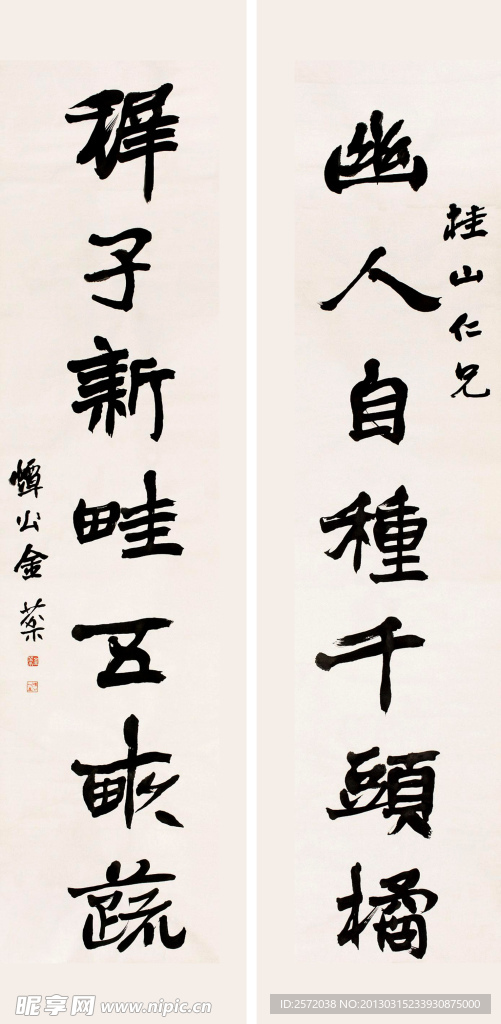 桂山仁兄
幽人自種千頭橘
稺子新畦五畝蔬
公金
昵享网 www.nipic.cn
ID:2572038 NO:20130315233930875000